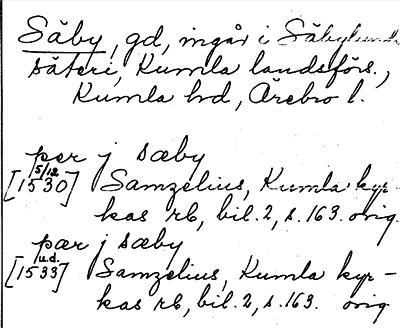 Säby, gd, ingår i Säbylunds
säteri, Kumla landsförs.,
Kumla hd, Örebro l.
per j sæby
5/12
[1530] Samzelius, Kumla kyr-
kas rb, bil. 2, s. 163. orig.
pær j sæby
u.d.
[1533] Samzelius, Kumla kyr-
kas rb, bil. 2, s. 163. orig